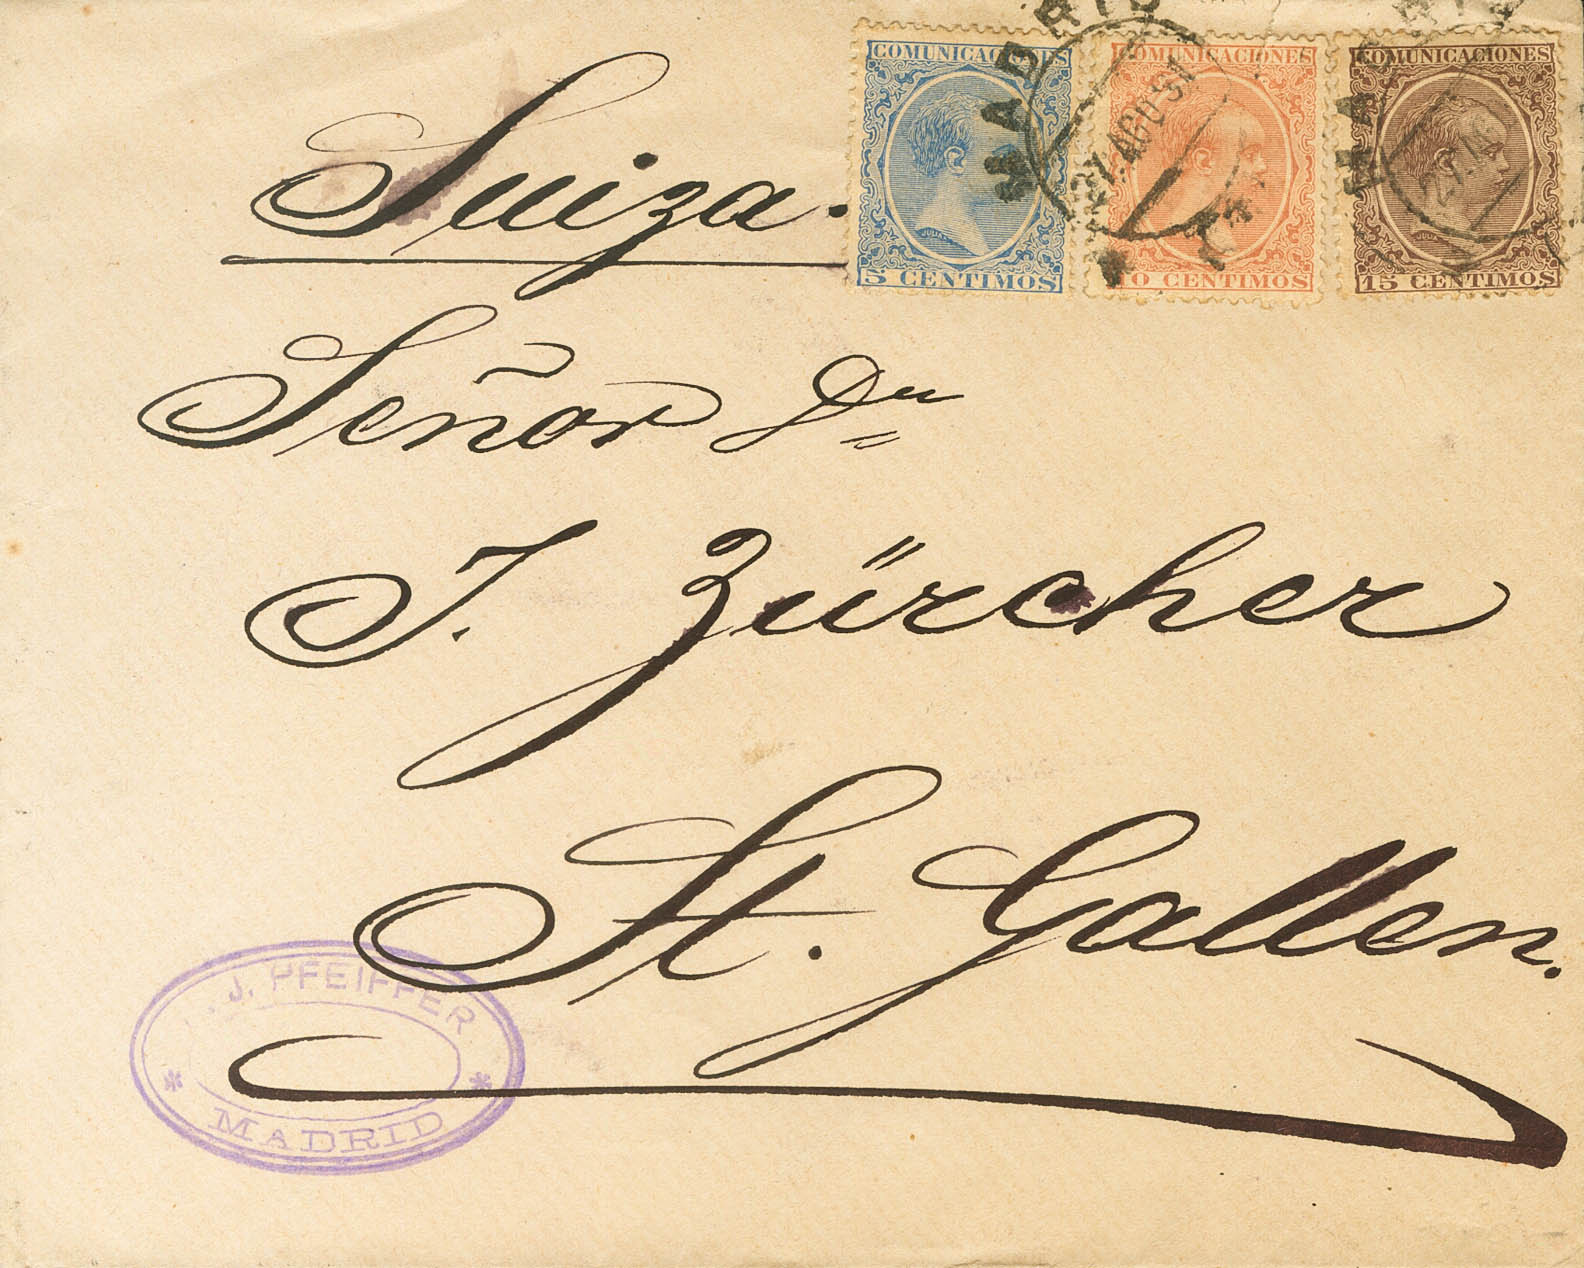 MADRID
COMUNICACIONES COMUNICACIONES COMUNICACIONES
27 AGOST
JULIA JULIA
5 CENTIMOS 10 CENTIMOS 15 CENTIMOS
Suiza.
Señor Dn
J. Zürcher
St. Gallen.
J. PFEIFFER
* *
MADRID